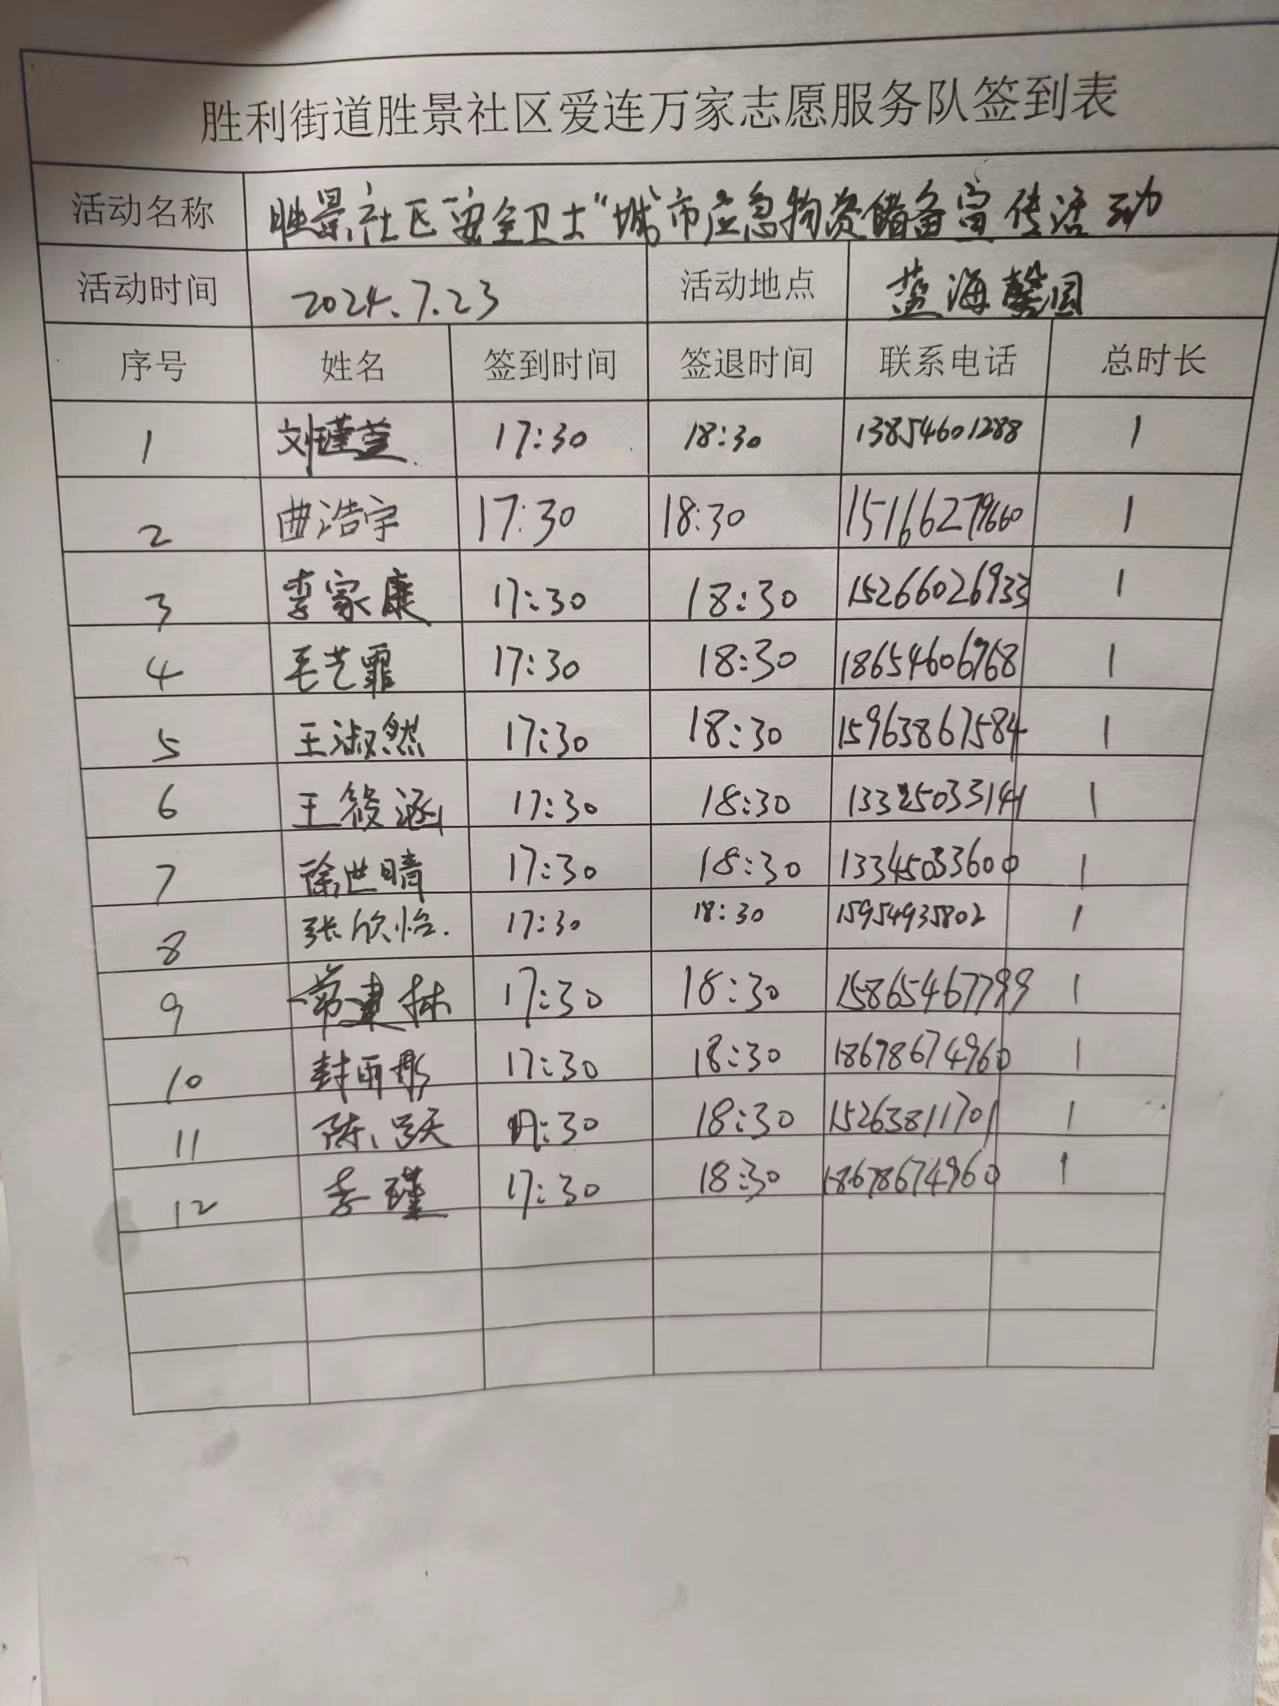 胜利街道胜景社区爱连万家志愿服务队签到表
活动名称 胜景社区"安全卫士"城市应急物资储备宣传活动
活动时间 2024.7.23 活动地点 蓝海馨园
序号 姓名 签到时间 签退时间 联系电话 总时长
1 刘瑾萱 17:30 18:30 13854601288 1
2 曲浩宇 17:30 18:30 15166279660 1
3 李家康 17:30 18:30 15266026933 1
4 毛艺霏 17:30 18:30 18654606968 1
5 王淑然 17:30 18:30 15963867584 1
6 王筱涵 17:30 18:30 13325033141 1
7 徐世晴 17:30 18:30 13345033600 1
8 张欣怡. 17:30 18:30 15954935802 1
9 建林 17:30 18:30 15865467799 1
10 封雨彤 17:30 18:30 18678674960 1
11 陈 17:30 18:30 15263811701 1
12 李瑾 17:30 18:30 18678674960 1